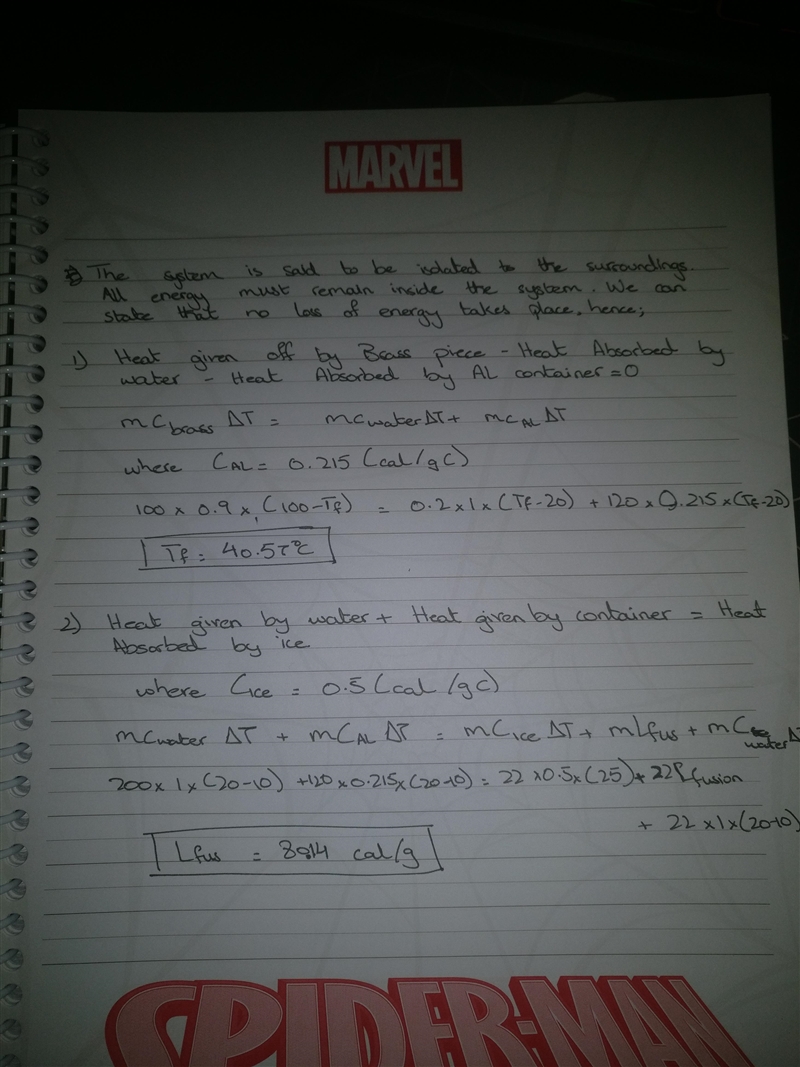 MARVEL
The system is said to be isolated to the surroundings.
All energy must remain inside the system. We can
state that no loss of energy takes place, hence;
1) Heat given off by Brass piece - Heat Absorbed by
water - Heat Absorbed by AL container = 0
mCbrass ΔT = mcwaterΔT + mcALΔT
where CAL = 0.215 (cal/gC)
100 × 0.9 × (100-Tf) = 0.2 × 1 × (Tf-20) + 120 × 0.215 × (Tf-20)
Tf = 40.57°C
2) Heat given by water + Heat given by container = Heat
Absorbed by ice
where Cice = 0.5 (cal/gC)
mCwater ΔT + mCAL ΔT = mCice ΔT + mLfus + mCwaterΔ
200 × 1 × (20-10) + 120 × 0.215 × (20-10) = 22 × 0.5 × (25) + 22Lfusion
+ 22 × 1 × (20-10)
Lfus = cal/g
SPIDER-MAN